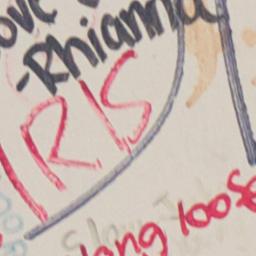 ove
-Rhianna
IRIS
hang loose